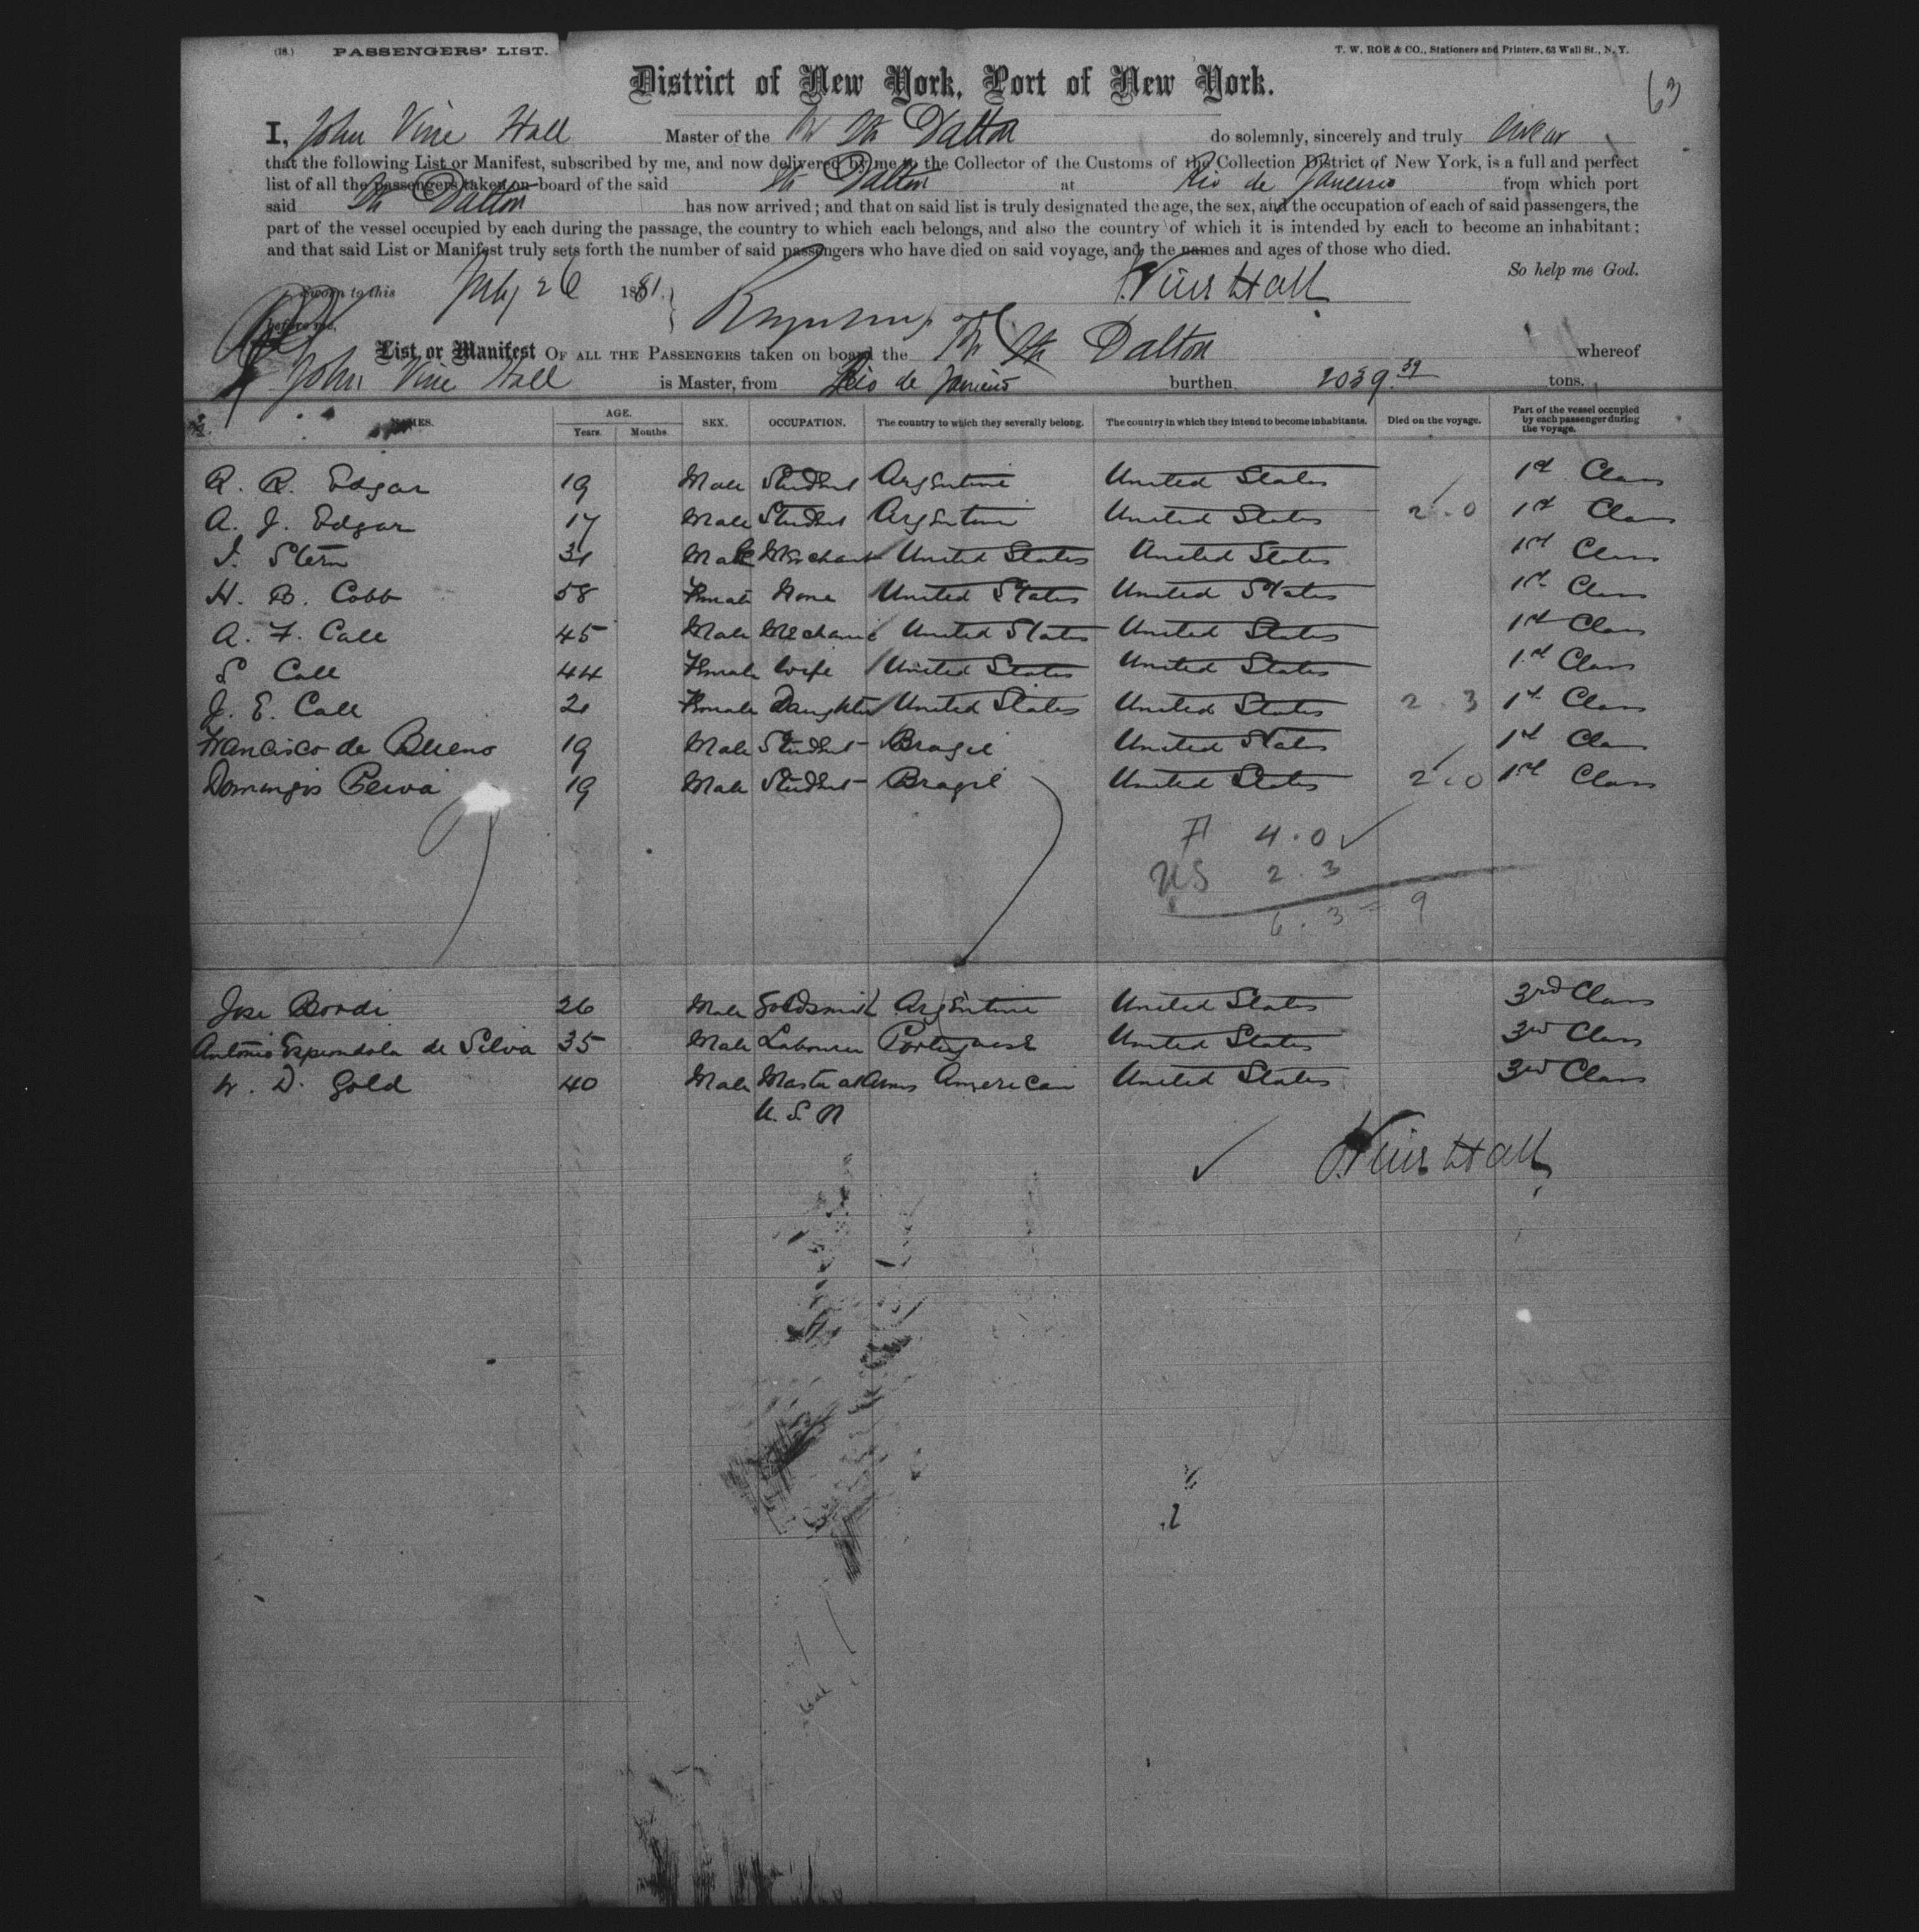 (18.) PASSENGERS' LIST. T. W. ROE & CO., Stationers and Printers, 63 Wall St., N. Y.
63
District of New York, Port of New York.
I, John Vine Hall Master of the Str Dalton do solemnly, sincerely and truly swear
that the following List or Manifest, subscribed by me, and now delivered by me to the Collector of the Customs of the Collection District of New York, is a full and perfect
list of all the passengers taken on board of the said Str Dalton at Rio de Janeiro from which port
said Str Dalton has now arrived; and that on said list is truly designated the age, the sex, and the occupation of each of said passengers, the
part of the vessel occupied by each during the passage, the country to which each belongs, and also the country of which it is intended by each to become an inhabitant;
and that said List or Manifest truly sets forth the number of said passengers who have died on said voyage, and the names and ages of those who died.
So help me God.
Sworn to this July 26 1881. J. Vine Hall
before me,
List or Manifest OF ALL THE PASSENGERS taken on board the Str Dalton whereof
John Vine Hall is Master, from Rio de Janeiro burthen 2039.39 tons.
NAMES. AGE. Years. Months. SEX. OCCUPATION. The country to which they severally belong. The country in which they intend to become inhabitants. Died on the voyage. Part of the vessel occupied by each passenger during the voyage.
R. R. Edgar 19 Male Student Argentine United States 1st Class
A. J. Edgar 17 Male Student Argentine United States 2.0 1st Class
I. Stern 31 Male Merchant United States United States 1st Class
H. B. Cobb 58 Female None United States United States 1st Class
A. F. Call 45 Male Mechanic United States United States 1st Class
S Call 44 Female Wife United States United States 1st Class
J. E. Call 21 Female Daughter United States United States 2.3 1st Class
Francisco de Bueno 19 Male Student Brazil United States 1st Class
Domingos Peiva 19 Male Student Brazil United States 2.0 1st Class
F 4.0
US 2.3
6.3 = 9
Jose Bordi 26 Male Goldsmith Argentine United States 3rd Class
Antonio Espindola de Silva 35 Male Labourer Portuguese United States 3rd Class
W. D. Gold 40 Male Master at Arms American United States 3rd Class
U.S.N
J. Vine Hall